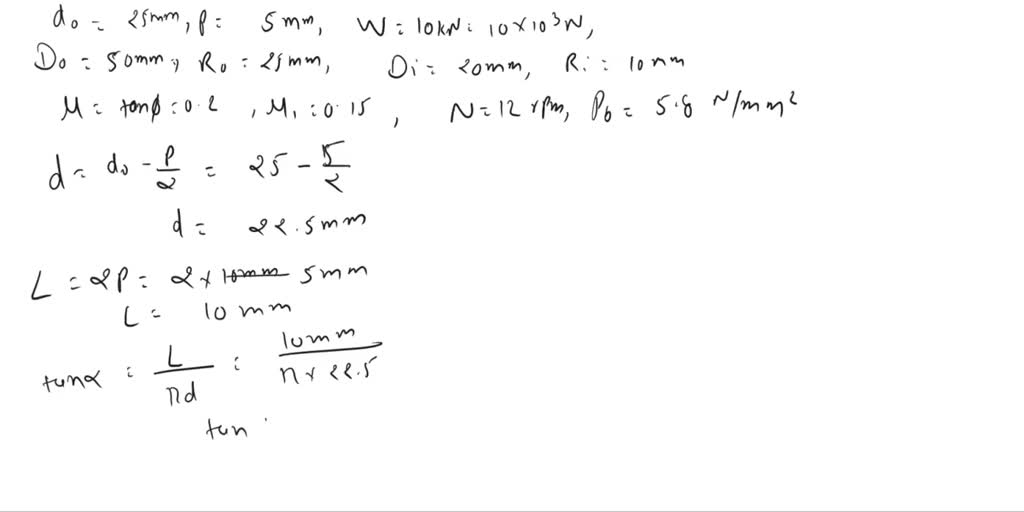 do = 25mm, p = 5mm, W = 10kN = 10×10³N,
Do = 50mm, Ro = 25mm, Di = 20mm, Ri = 10mm
μ = tanϕ = 0.2, μ₁ = 0.15, N = 12 rpm, Pb = 5.8 N/mm²
d = do - p/2 = 25 - 5/2
d = 22.5mm
L = 2P = 2× 5mm
L = 10 mm
tanα = L/πd = 10mm/π×22.5
tan